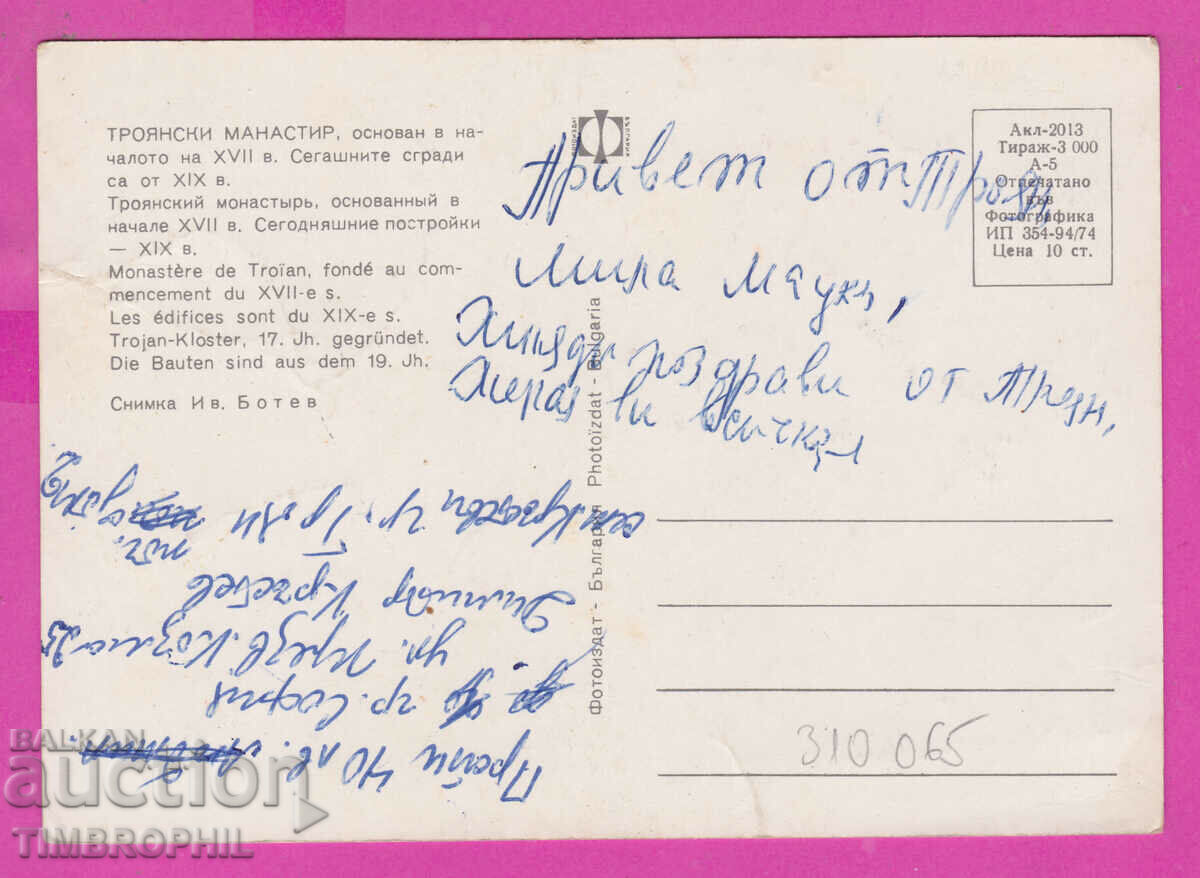 ТРОЯНСКИ МАНАСТИР, основан в на-
чалото на XVII в. Сегашните сгради
са от XIX в.
Троянский монастырь, основанный в
начале XVII в. Сегодняшние постройки
— XIX в.
Monastère de Troïan, fondé au com-
mencement du XVII-e s.
Les édifices sont du XIX-e s.
Trojan-Kloster, 17. Jh. gegründet.
Die Bauten sind aus dem 19. Jh.
Снимка Ив. Ботев
ФОТОИЗДАТ
БЪЛГАРИЯ
Акл-2013
Тираж-3 000
А-5
Отпечатано
във
Фотографика
ИП 354-94/74
Цена 10 ст.
Привет от Троян
Мила
поздрави от Троян,
ви всички
Фотоиздат - България Photoïzdat - Bulgaria
Прати 40 лв.
гр. София
ул.
Димитър Кръстев
гр. Троян
310 065
BALKAN
auction
TIMBROPHIL